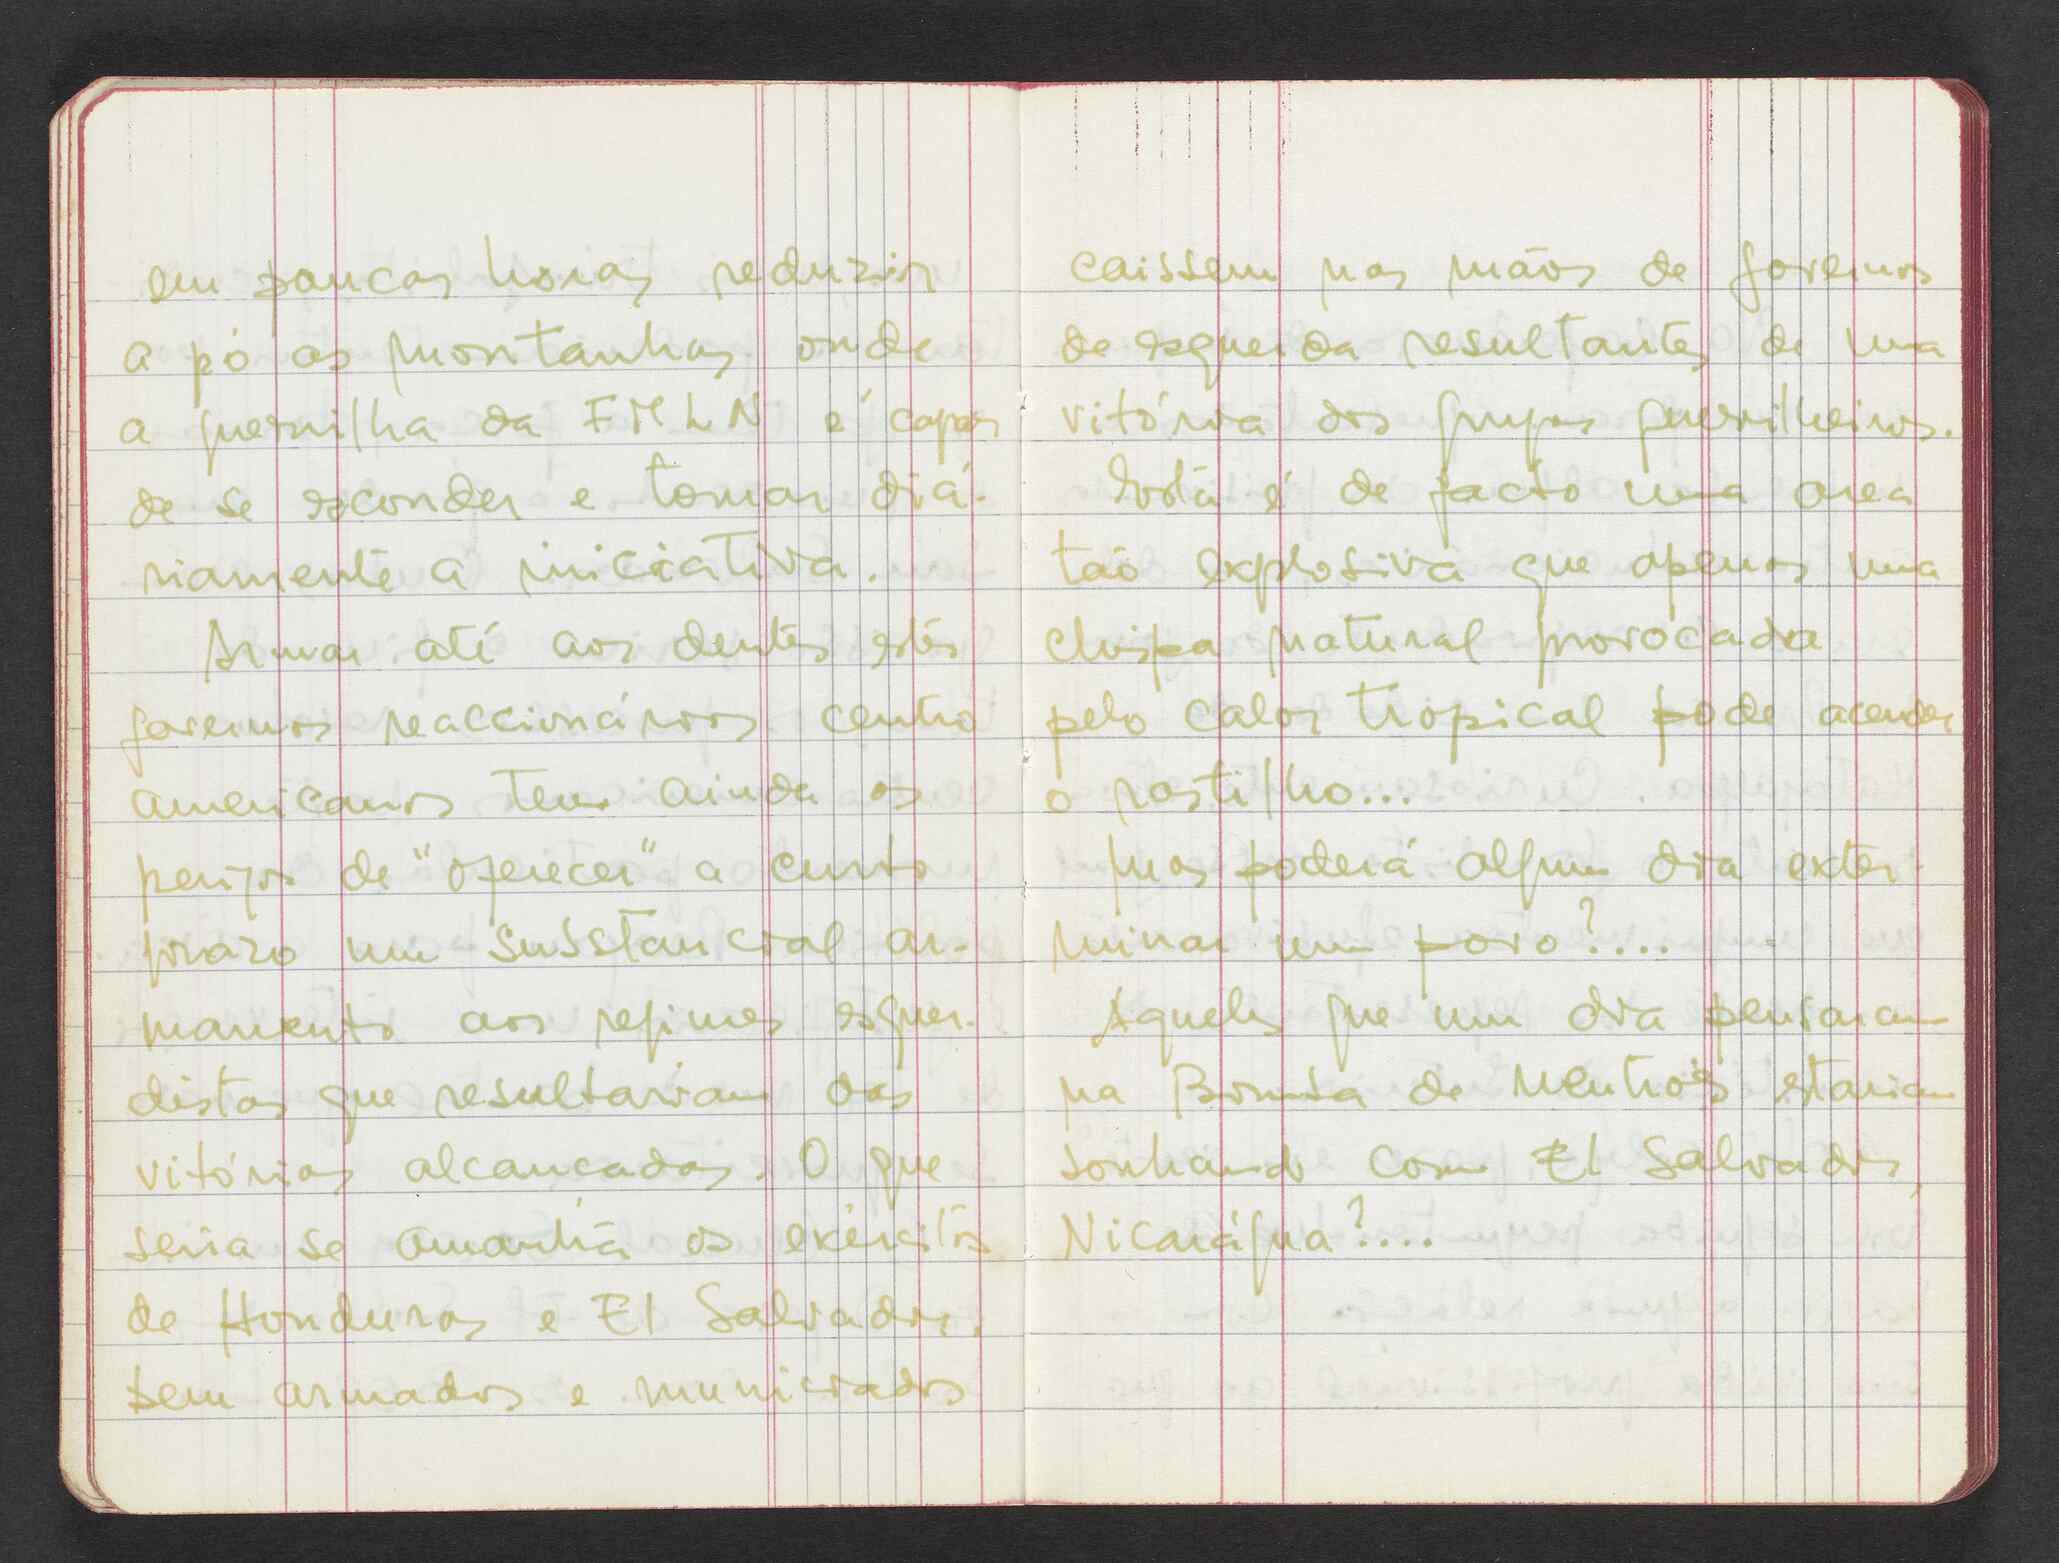 em poucas horas reduzir
a pó as montanhas onde
a guerrilha da FMLN é capaz
de se esconder e tomar diá-
riamente a iniciativa.
Armar até aos dentes estes
governos reaccionários centro
americanos tem ainda os
perigos de "oferecer" a curto
prazo um substancial ar-
mamento aos regimes esquer-
distas que resultariam das
vitórias alcancadas. O que
seria se amanhã os exércitos
de Honduras e El Salvador,
bem armados e municiados
caissem nas mãos de governos
de esquerda resultantes de uma
vitória dos grupos guerrilheiros.
é de facto uma area
tão explosiva que apenas uma
chispa natural provocada
pelo calor tropical pode acender
o rastilho...
Mas poderá algum dia exter-
minar um povo?....
Aqueles que um dia pensaram
na Bomba de Neutrões estariam
sonhando com El Salvador,
Nicarágua?....